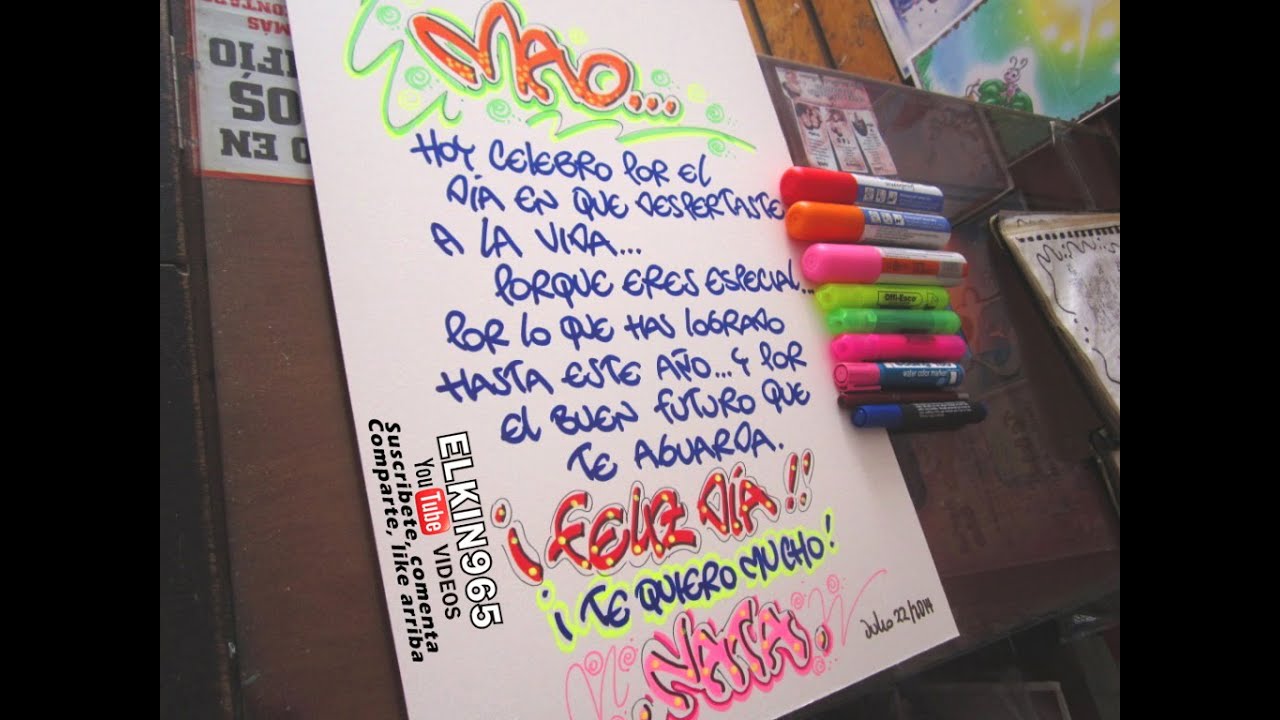 MAO...
HOY CELEBRO POR EL
DÍA EN QUE DESPERTASTE
A LA VIDA...
PORQUE ERES ESPECIAL...
POR LO QUE HAS LOGRADO
HASTA ESTE AÑO...Y POR
EL BUEN FUTURO QUE
TE AGUARDA.
¡FELIZ DÍA!!
¡TE QUIERO MUCHO!
NATA.
Julio 22/2014
ELKIN965
YouTube VIDEOS
Suscribete, comenta
Comparte, like arriba
MÁS
OS
O EN
Offi-Esco
water color marker